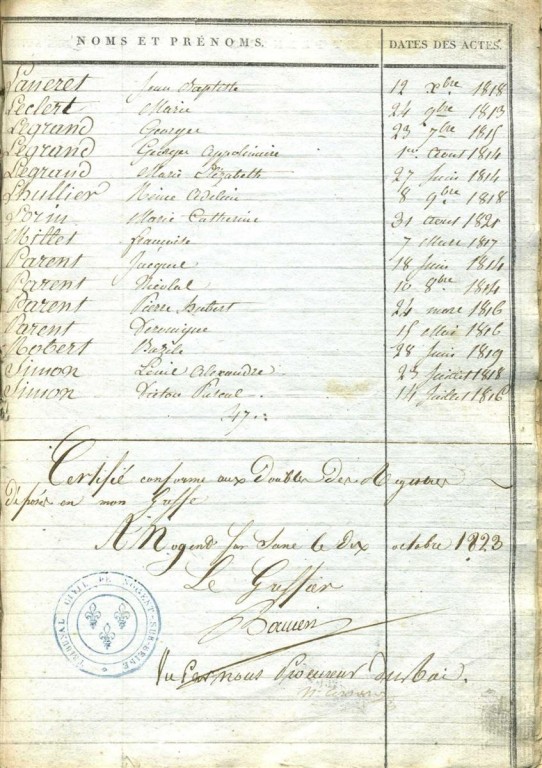 NOMS ET PRÉNOMS. DATES DES ACTES.
Laneret Jean Baptiste 12 xbre 1818
Leclert Marie 24 9bre 1813
Legrand Georges 23 7bre 1815
Legrand Georges Appolinaire 1er Aout 1814
Legrand Marie Elizabeth 27 Juin 1814
Lhullier Adeline 8 9bre 1818
Lorin Marie Catherine 31 Aout 1821
Millet françoise 7 Mars 1817
Parent Jacques 18 Juin 1814
Parent Nicolas 10 8bre 1814
Parent Pierre hubert 24 mars 1816
Parent Veronique 15 Mai 1816
Robert Bazile 28 Juin 1819
Simon Alexandre 23 Juillet 1818
Simon Pascal 14 Juillet 1816
47
Certifié conforme aux Doubles Des Registres
Déposés en mon Greffe
A Nogent sur Seine le Dix octobre 1823
Le Greffier
TRIBUNAL CIVIL DE NOGENT-SUR-SEINE
Vu Par nous Procureur du Roi.